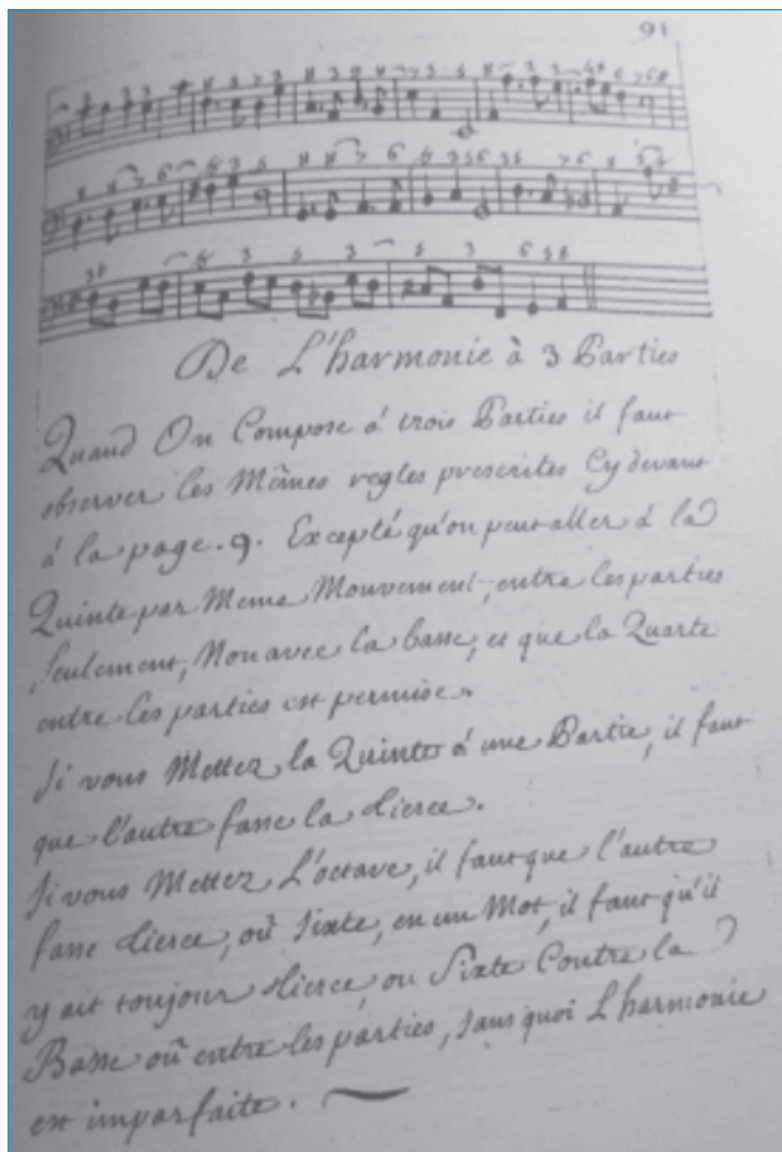 91
De L'harmonie à 3 Parties
Quand On Compose à trois Parties il faut
observer les Mêmes regles prescrites Cy devant
à la page. 9. Excepté qu'on peut aller à la
Quinte par Meme Mouvement, entre les parties
seulement, Non avec la basse, et que la Quarte
entre les parties est permise.
Si vous Mettez la Quinte à une Partie, il faut
que l'autre fasse la tierce.
Si vous Mettez L'octave, il faut que l'autre
fasse tierce, où sixte, en un Mot, il faut qu'il
y ait toujour tierce, ou Sixte Contre la
Basse où entre les parties, sans quoi L'harmonie
est imparfaite.